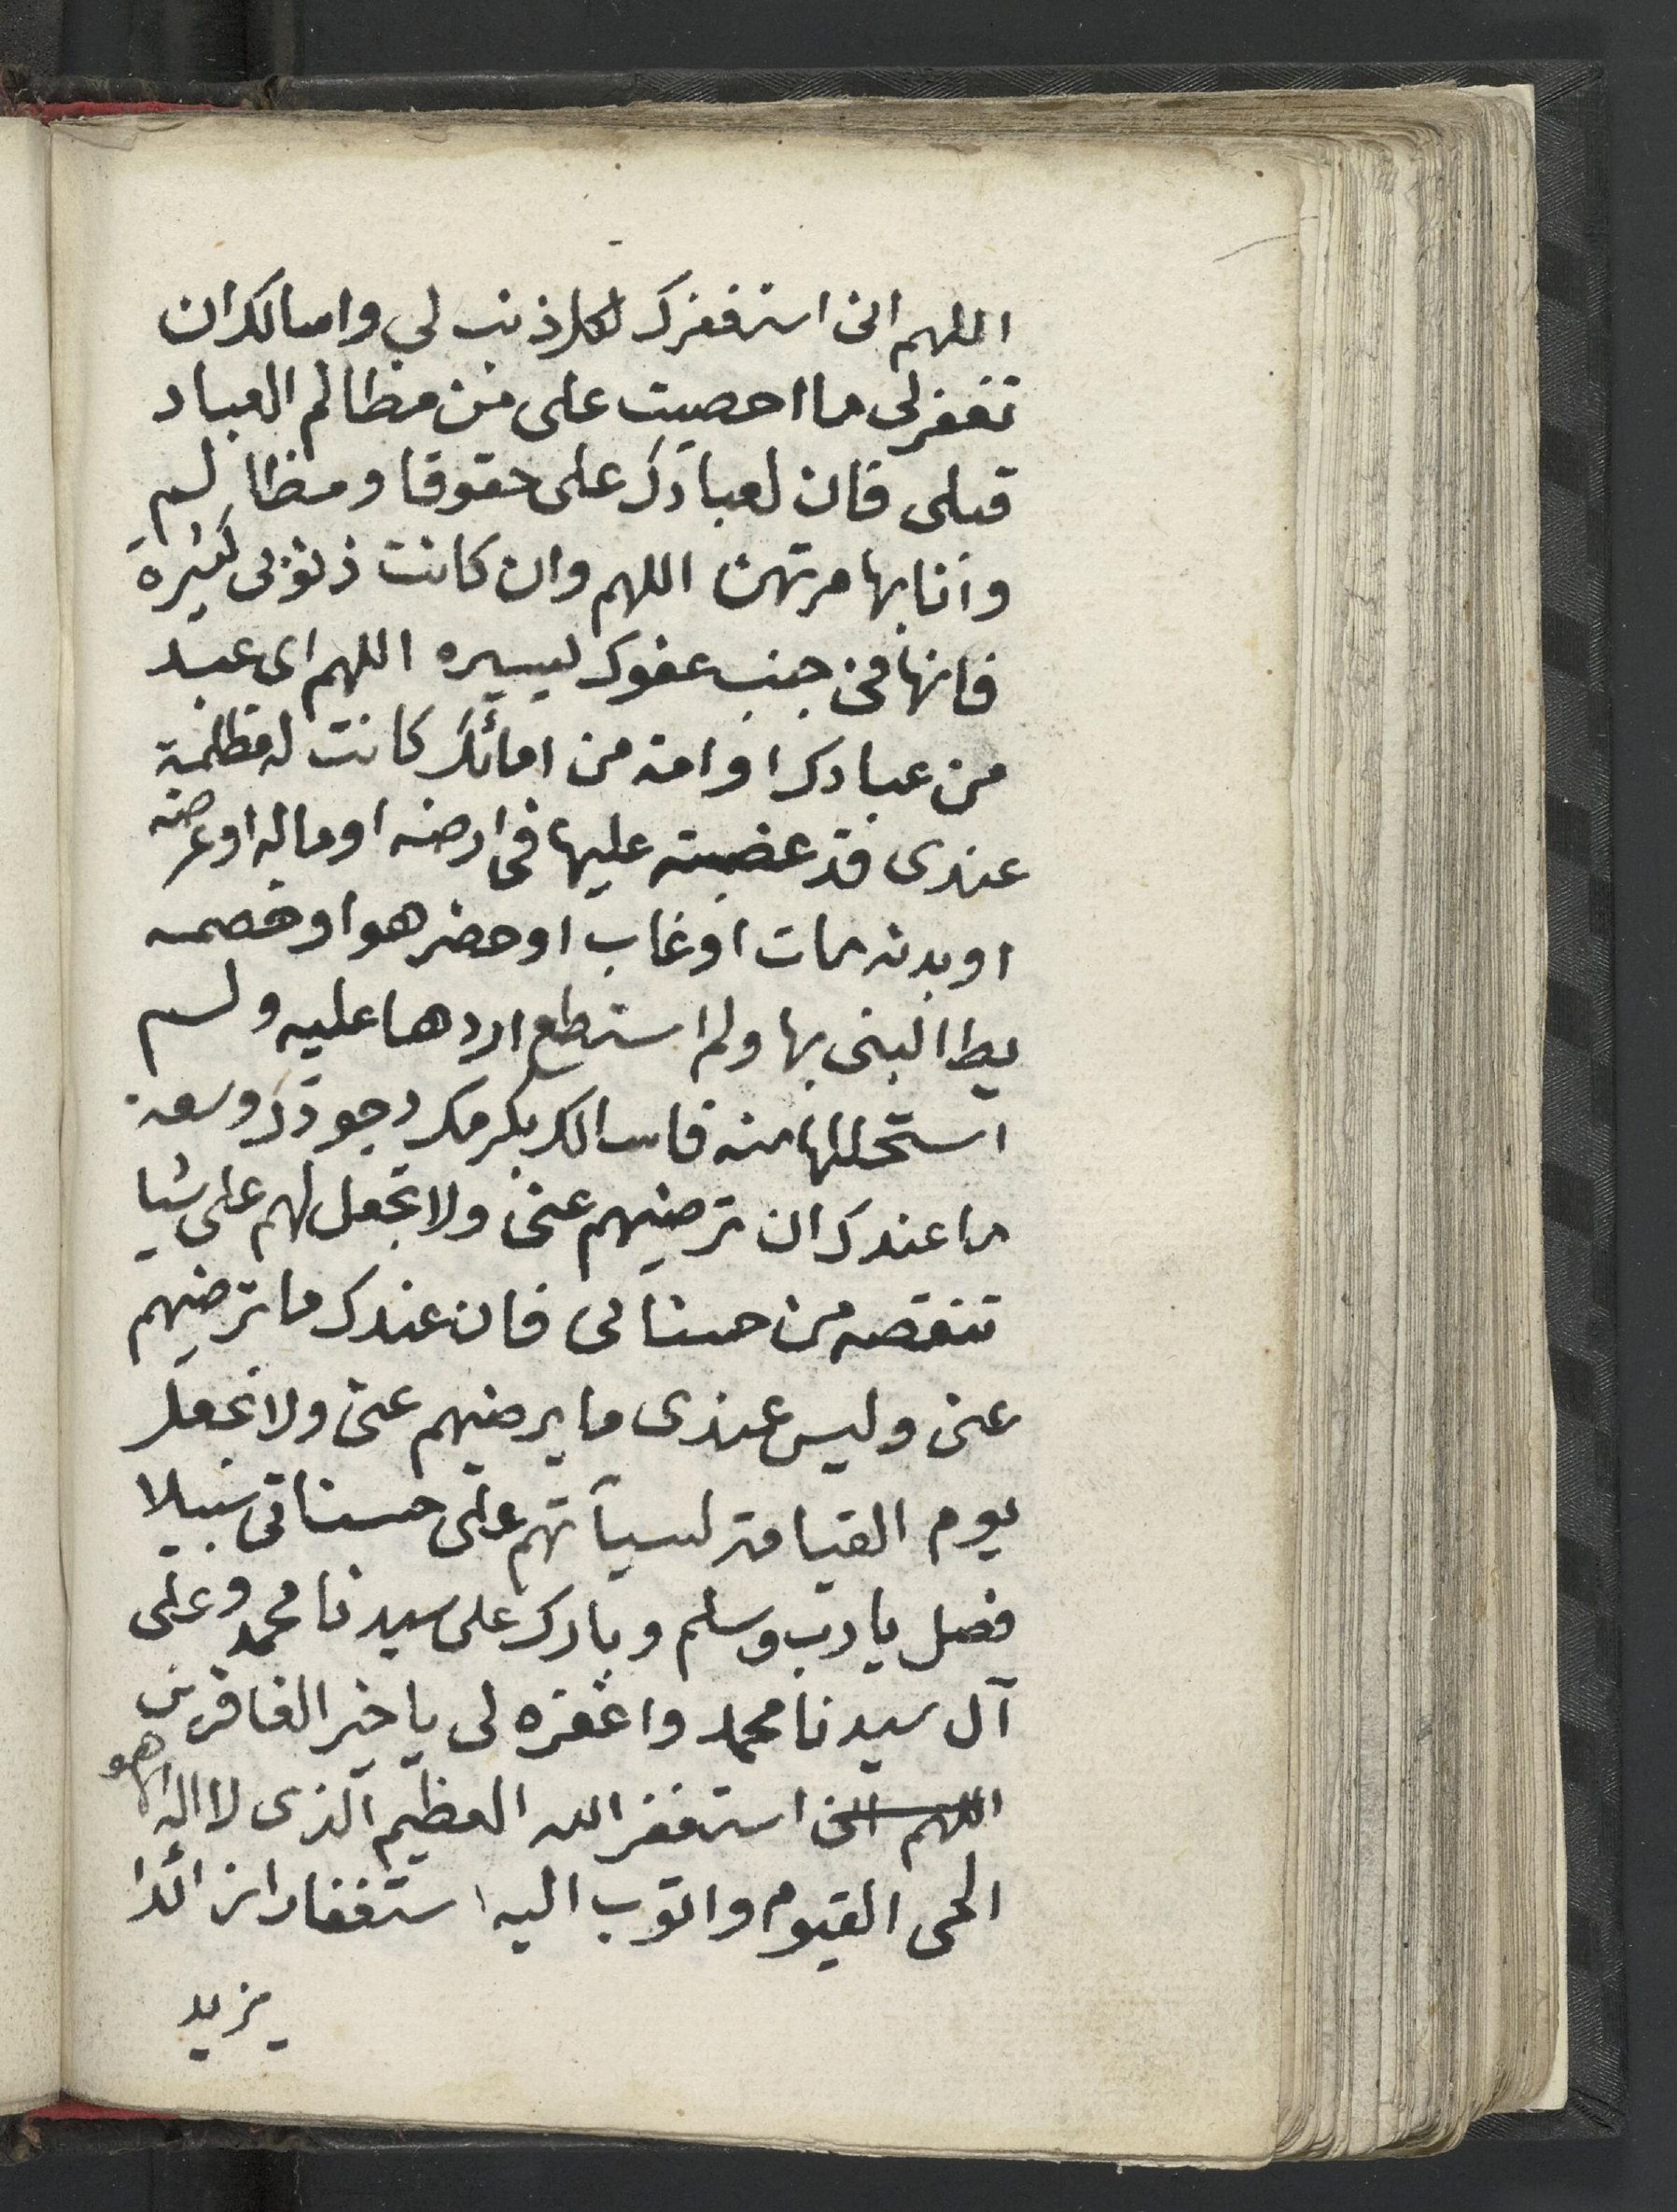 اللهم انى استغفرك لكل ذنب لي واسالك ان
تغفر لى ما احصيت على من مظالم العباد
قبلى فان لعبادك على حقوقا ومظالم
وانا بها مرتهن اللهم وان كانت ذنوبى كثيرة
فانها فى جنب عفوك ليسيره اللهم اى عبد
من عبادك او امة من امائك كانت له مظلمة
عندى قد غضبته عليها فى ارضه او ماله او عرضه
او بدنه مات او غاب او حضر هو او خصمه
يطالبنى بها ولم استطع اردها عليه ولم
استحللها منه فاسالك بكرمك وجودك وسعة
ما عندك ان ترضيهم عنى ولا تجعل لهم على شيا
تنقصه من حسناتى فان عندك ما ترضيهم
عنى وليس عندى ما يرضيهم عنى ولا تجعل
يوم القيامة لسيآتهم على حسناتى سبيلا
فصل يا رب وسلم وبارك على سيدنا محمد وعلى
آل سيدنا محمد واغفره لى يا خير الغافرين
اللهم انى استغفر الله العظيم الذى لا اله الا هو
الحى القيوم واتوب اليه استغفارا زائدا
يزيد